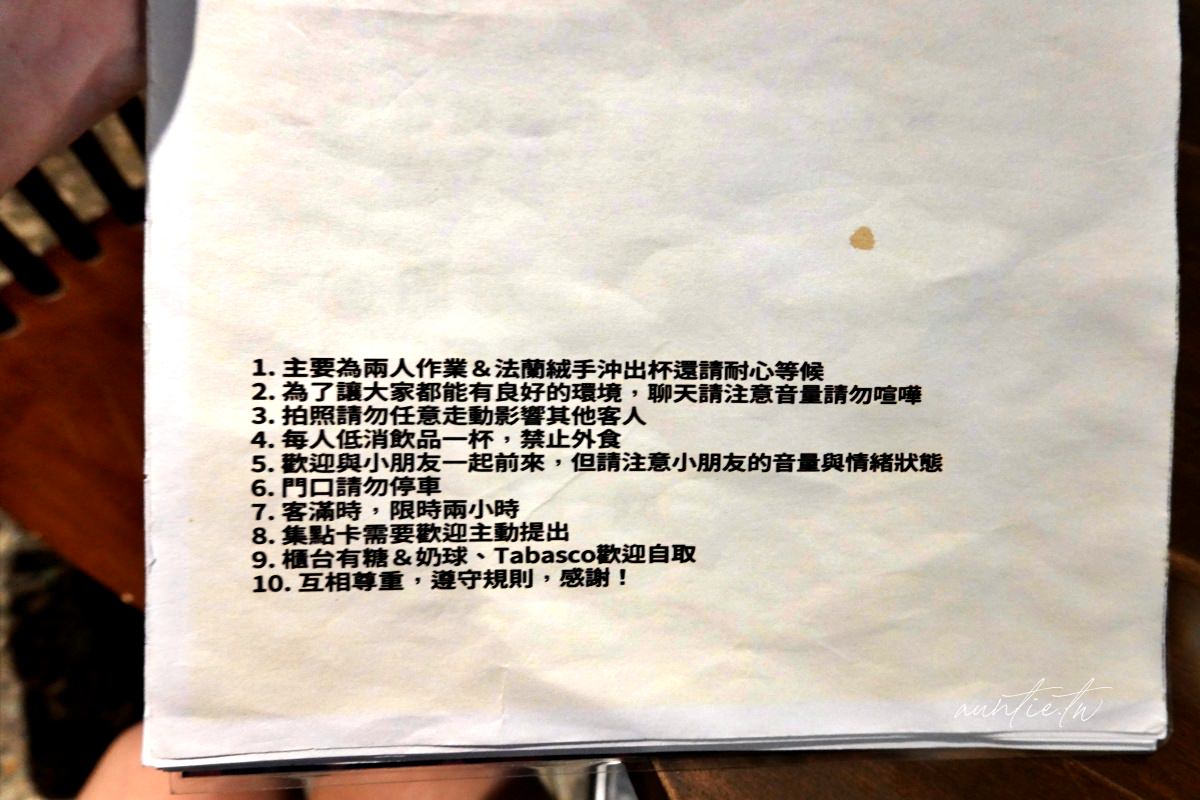 1. 主要為兩人作業＆法蘭絨手沖出杯還請耐心等候
2. 為了讓大家都能有良好的環境，聊天請注意音量請勿喧嘩
3. 拍照請勿任意走動影響其他客人
4. 每人低消飲品一杯，禁止外食
5. 歡迎與小朋友一起前來，但請注意小朋友的音量與情緒狀態
6. 門口請勿停車
7. 客滿時，限時兩小時
8. 集點卡需要歡迎主動提出
9. 櫃台有糖＆奶球、Tabasco歡迎自取
10. 互相尊重，遵守規則，感謝！
auntie.tw